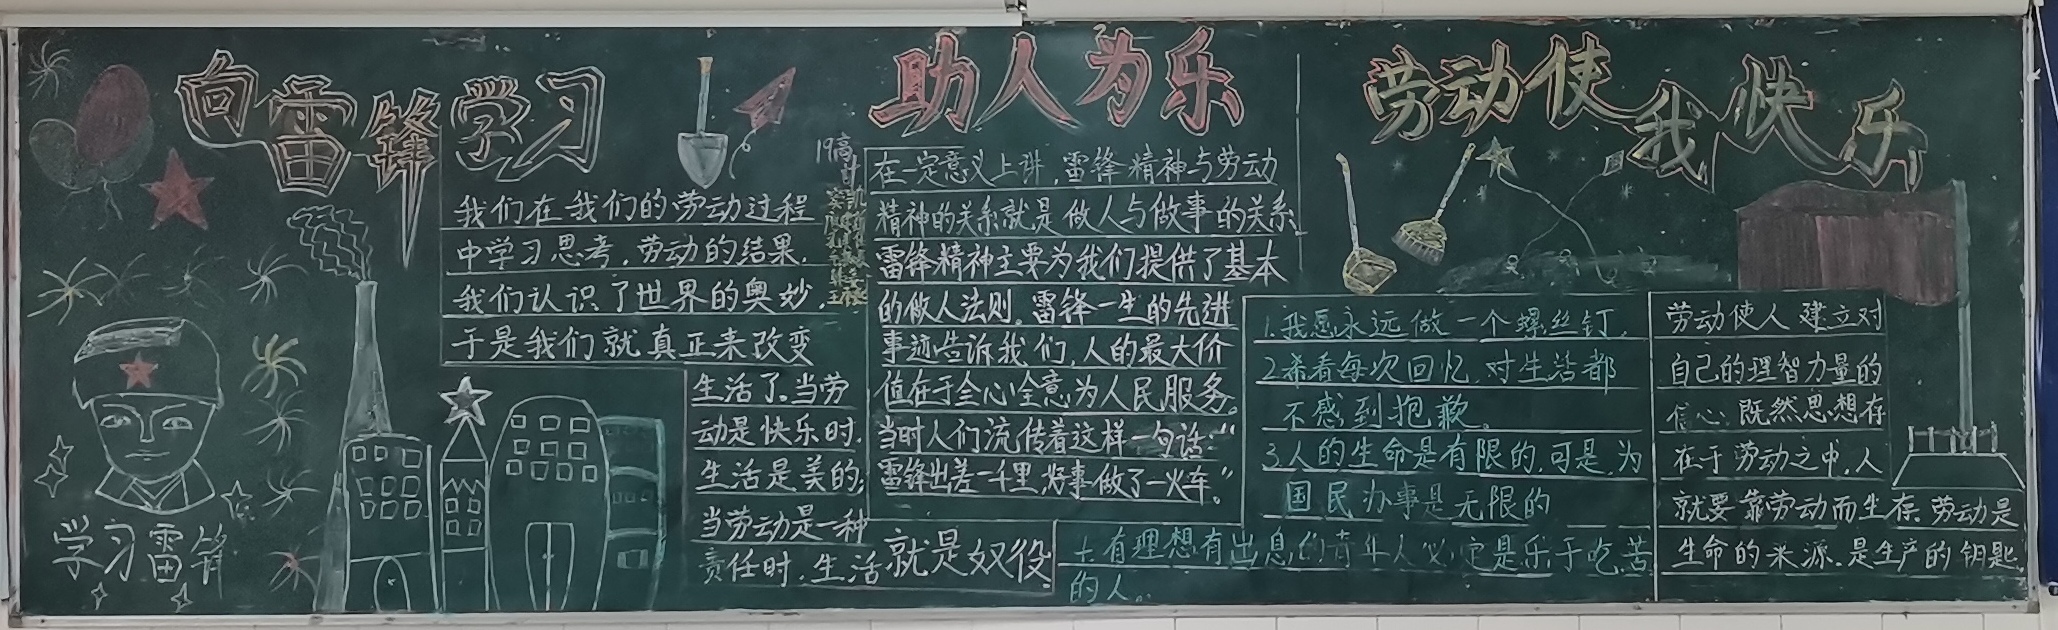 向雷锋学习
我们在我们的劳动过程
中学习思考,劳动的结果,
我们认识了世界的奥妙,
于是我们就真正来改变
生活了。当劳
动是快乐时,
生活是美的;
当劳动是一种
责任时,生活就是奴役。
学习雷锋
助人为乐
19高
在一定意义上讲,雷锋精神与劳动
精神的关系就是做人与做事的关系
雷锋精神主要为我们提供了基本
的做人法则。雷锋一生的先进
事迹告诉我们,人的最大价
值在于全心全意为人民服务。
当时人们流传着这样一句话:“
雷锋出差一千里,好事做了一火车。”
劳动使我快乐
1.我愿永远做一个螺丝钉。
2.希看每次回忆,对生活都
不感到抱歉。
3.人的生命是有限的,可是,为
国民办事是无限的
4.有理想有出息的青年人必定是乐于吃苦
的人。
劳动使人建立对
自己的理智力量的
信心;既然思想存
在于劳动之中,人
就要靠劳动而生存。劳动是
生命的来源,是生产的钥匙。